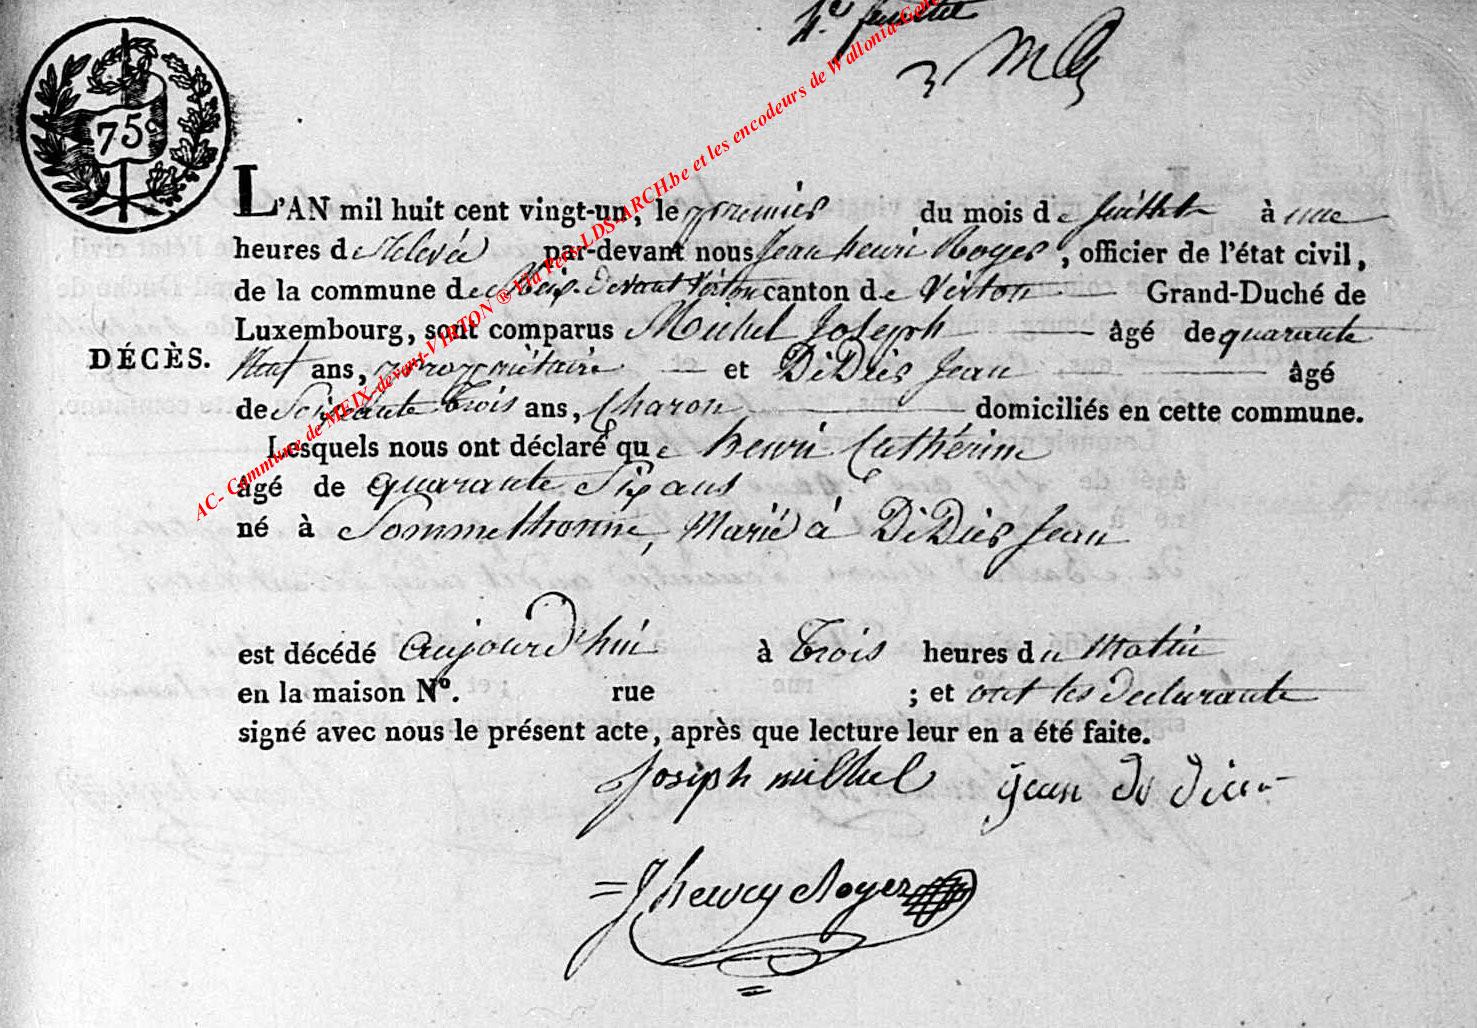 4.e feuillet
75
L'AN mil huit cent vingt-un, le premier du mois de Juillet à une
heures de Relevée par-devant nous Jean henri Royer, officier de l'état civil,
de la commune de Meix-devant Virton canton de Virton Grand-Duché de
Luxembourg, sont comparus Michel Joseph âgé de quarante
DÉCÈS.
Neuf ans, propriétaire et DiDier Jean âgé
de Soixante trois ans, Charon domiciliés en cette commune.
Lesquels nous ont déclaré que henri Cathérine
âgé de quarante Six ans
né à Sommethonne, Marié à DiDier Jean
est décédé aujourd'hui à trois heures du Matin
en la maison N°. rue ; et ont les declarants
signé avec nous le présent acte, après que lecture leur en a été faite.
Joseph michel jean di dier
J henry Royer
AC- Commune de MEIX-devant-VIRTON ® Via Pers-LDS-ARCH.be et les encodeurs de Wallonia-Gene